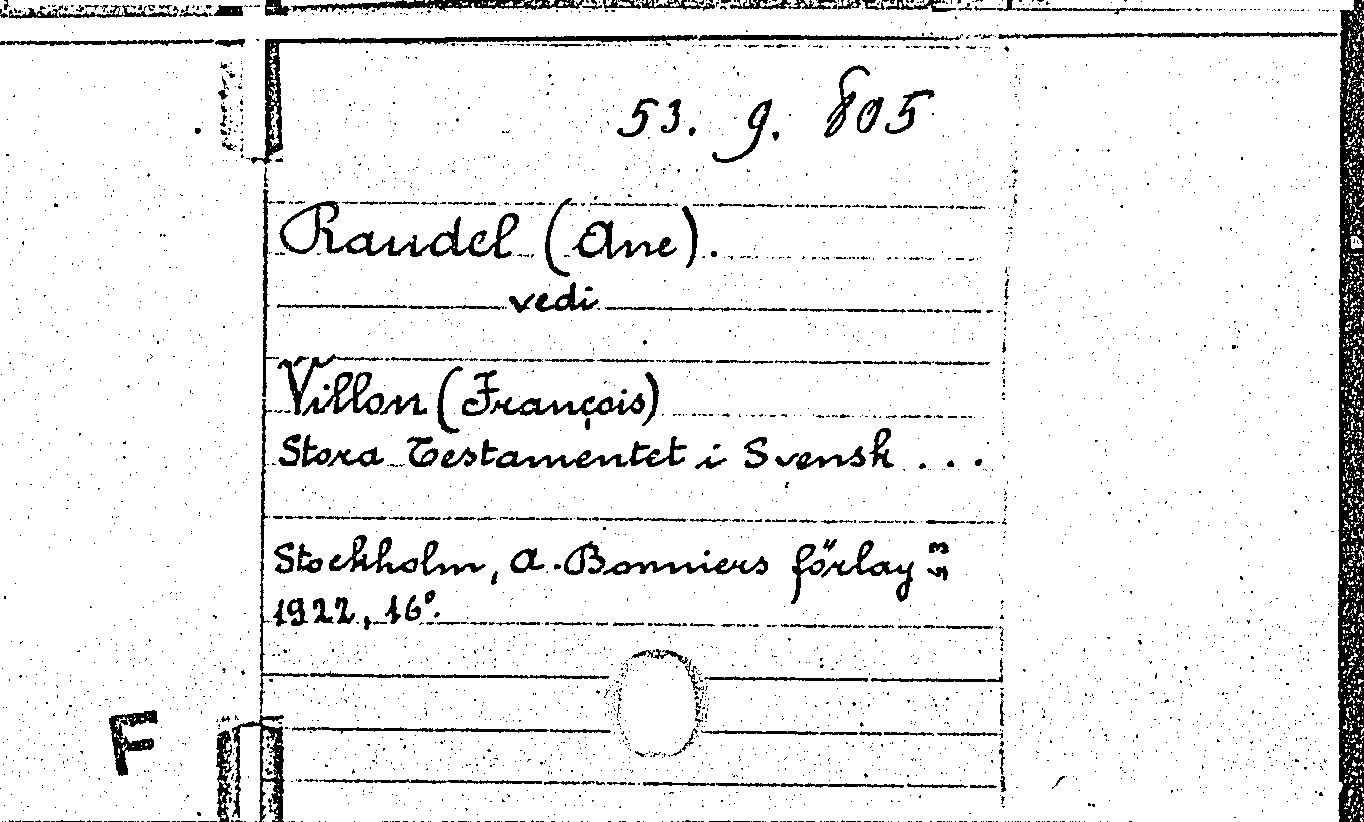 53. 9. 805
Raudel (Ane).
vedi
Villon (François)
Stora Testamentet i Svensk . . .
Stockholm, A. Bonniers förlay 53
1922, 16°.
F